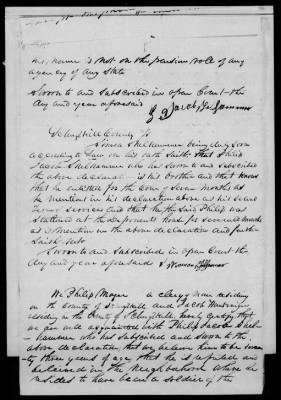 his name is not on the pension role of any
agency of any State
Sworn to and Subscribed in open Court the
day and year aforesaid
Jacob
Schuylkill County Ss
Simon Shelhammer being duly Sworn
according to Law on his oath Saith that Philip
Jacob Shelhammer who has Sworn to and Subscribed
the above declaration is his brother and that knows
that he enlisted for the term of Seven months as
he mention in his declaration above as his second
term of Services and that the Said Philip was
stationed at the different for several months
as is mention in the above declaration and further
Saith Not
Sworn to and Subscribed in open Court the
day and year aforesaid
We Philip Moyer a clergyman residing
in the County of Schuylkill and Jacob
residing in the County of Schuylkill hereby Certify that
we are well acquainted with Philip Jacob Shel-
hammer who has subscribed and sworn to the
above declaration, that we believe him to be seven-
ty three years of age, that he is reputed and
believed in the Neighborhood where he
resides to have been a soldier of the